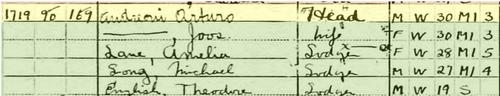 1719 90 169 Andreoni Arturo Head M W 30 M1 3
———, Joos. Wife F W 30 M1 3
Lane, Amelia Lodger F W 28 M1 5
Long, Michael Lodger M W 27 M1 4
English, Theodore Lodger M W 19 S